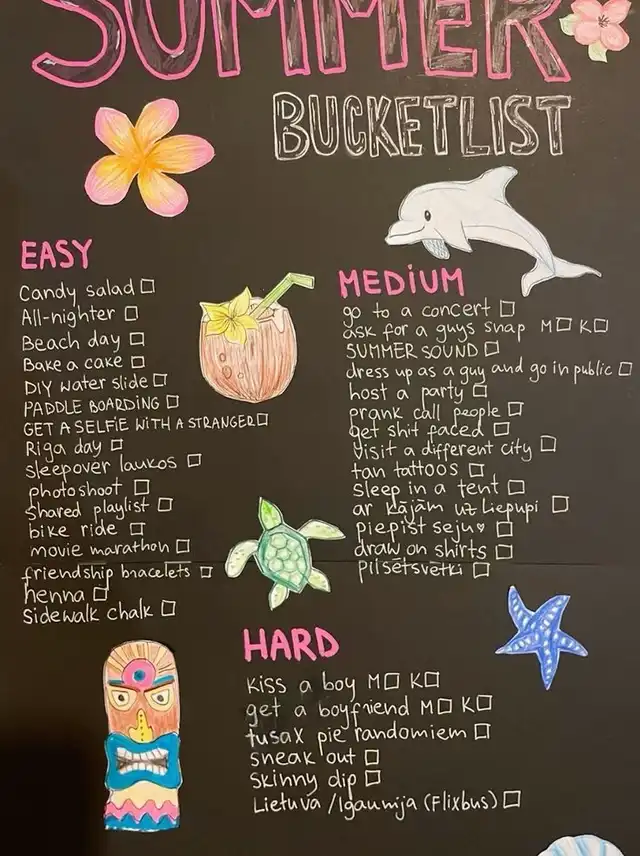 SUMMER
BUCKETLIST
EASY
Candy salad
All-nighter
Beach day
Bake a cake
DIY water slide
PADDLE BOARDING
GET A SELFIE WITH A STRANGER
Riga day
sleepover laukos
photoshoot
shared playlist
bike ride
movie marathon
friendship bracelets
henna
Sidewalk chalk
MEDIUM
go to a concert
ask for a guys snap M K
SUMMER SOUND
dress up as a guy and go in public
host a party
prank call people
get shit faced
visit a different city
tan tattoos
sleep in a tent
ar kājām uz Liepupi
piepist seju
draw on shirts
pilsētsvētki
HARD
kiss a boy M K
get a boyfriend M K
tusax pie randomiem
sneak out
skinny dip
Lietuva/Igaunija (Flixbus)